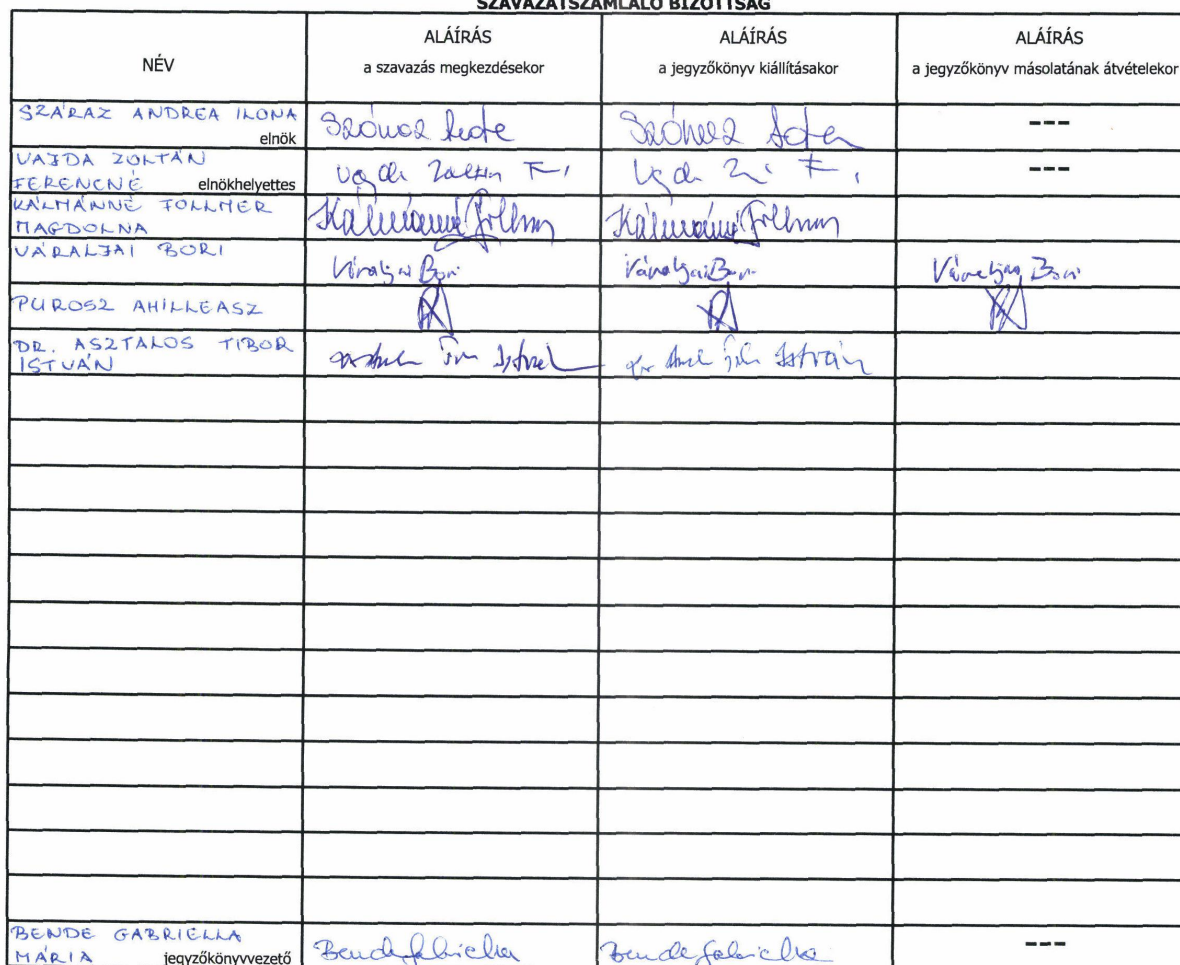 SZAVAZATSZÁMLÁLÓ BIZOTTSÁG
NÉV
ALÁÍRÁS
a szavazás megkezdésekor
ALÁÍRÁS
a jegyzőkönyv kiállításakor
ALÁÍRÁS
a jegyzőkönyv másolatának átvételekor
SZÁRAZ ANDREA ILONA
elnök
---
VAJDA ZOLTÁN
FERENCNÉ elnökhelyettes
---
KÁLMÁNNÉ FOLLMER
MAGDOLNA
Kálmánné Follmer
Kálmánné Follmer
VÁRALJAI BORI
Váraljai Bori
Váraljai Bori
Váraljai Bori
PUROSZ AHILLEASZ
DR. ASZTALOS TIBOR
ISTVÁN
István
István
BENDE GABRIELLA
MÁRIA jegyzőkönyvvezető
Bende Gabriella
Bende Gabriella
---